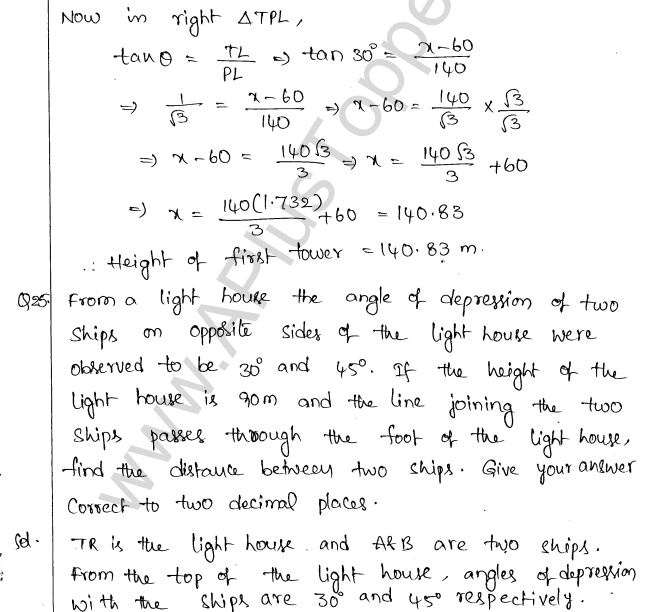 Now in right ΔTPL,
tanθ = TL/PL ⇒ tan 30° = x-60/140
⇒ 1/√3 = x-60/140 ⇒ x-60 = 140/√3 × √3/√3
⇒ x-60 = 140√3/3 ⇒ x = 140√3/3 +60
⇒ x = 140(1.732)/3 +60 = 140.83
∴ Height of first tower = 140.83 m.
Q25. From a light house the angle of depression of two
Ships on opposite sides of the light house were
observed to be 30° and 45°. If the height of the
light house is 90m and the line joining the two
Ships passes through the foot of the light house,
find the distance between two ships. Give your answer
Correct to two decimal places.
Sol. TR is the light house and A&B are two ships.
From the top of the light house, angles of depression
with the ships are 30° and 45° respectively.
www.APlusToppe